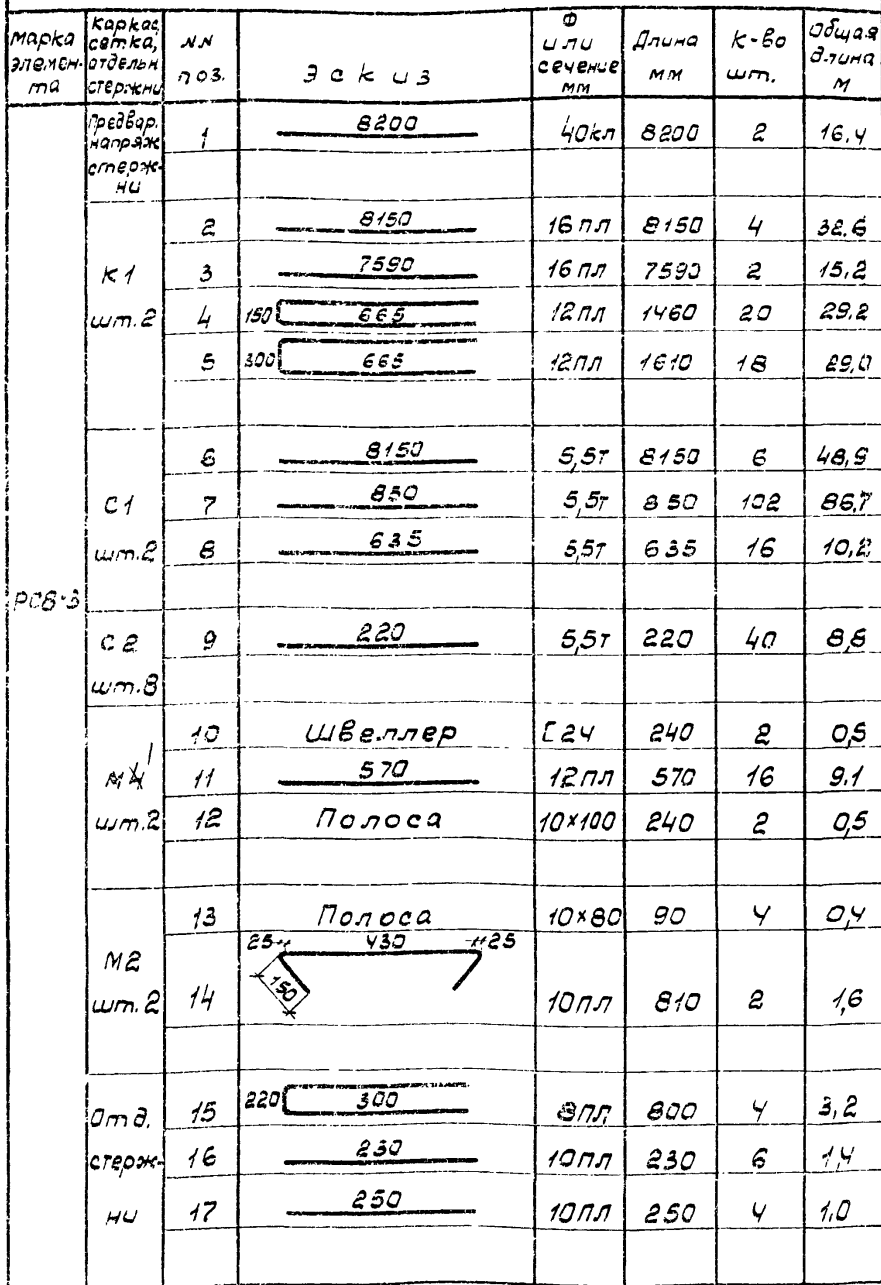 Марка элемен-та | Каркас, сетка, отдельн стержни | NN поз. | Эскиз | Ф или сечение мм | Длина мм | К-во шт. | Общая длина м
Предвар. напряж стерж-ни | 1 | 8200 | 40кл | 8200 | 2 | 16.4
2 | 8150 | 16пл | 8150 | 4 | 32.6
К1 | 3 | 7590 | 16пл | 7590 | 2 | 15,2
шт.2 | 4 | 150 665 | 12пл | 1460 | 20 | 29,2
5 | 300 665 | 12пл | 1610 | 18 | 29,0
6 | 8150 | 5,5т | 8150 | 6 | 48,9
С1 | 7 | 850 | 5,5т | 850 | 102 | 86,7
шт.2 | 8 | 635 | 5,5т | 635 | 16 | 10,2
РСВ-3
С2 | 9 | 220 | 5,5т | 220 | 40 | 8,8
шт.8
10 | Швеллер | [24 | 240 | 2 | 0,5
М1 | 11 | 570 | 12пл | 570 | 16 | 9.1
шт.2 | 12 | Полоса | 10×100 | 240 | 2 | 0,5
13 | Полоса | 10×80 | 90 | 4 | 0,4
25 430 25
М2
150
шт.2 | 14 | 10пл | 810 | 2 | 1,6
Отд. | 15 | 220 300 | 8пл | 800 | 4 | 3,2
стерж- | 16 | 230 | 10пл | 230 | 6 | 1,4
ни | 17 | 250 | 10пл | 250 | 4 | 1,0